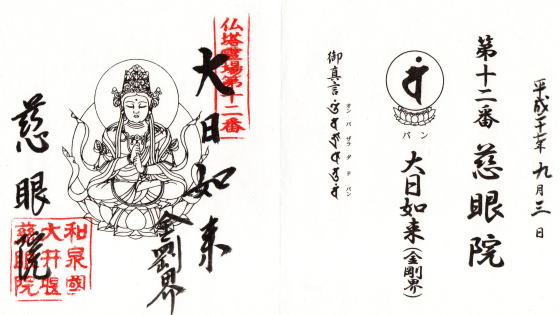 平成二十七年 九月三日
第十二番 慈眼院
バン
大日如来(金剛界)
オン バ ザラ ダ ド バン
御真言
仏塔霊場第十二番
大日如来
金剛界
慈眼院
和泉國
大井堰
慈眼院